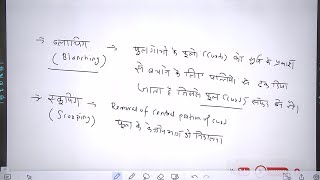 → ब्लांचिंग → फूलगोभी के फूलों (curd) को सूर्य के प्रकाश
(Blanching) से बचाने के लिए पत्तियों से ढक दिया
जाता है जिससे फूल (curd) सफेद बने रहे।
→ स्कूपिंग → Removal of central portion of curd
(Scooping) फूल के केन्द्रीय भाग को निकालना।